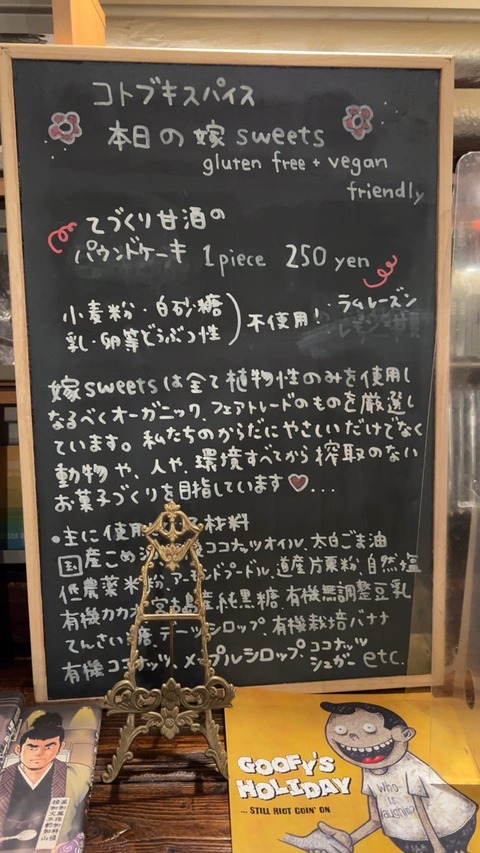 コトブキスパイス
本日の嫁 sweets
gluten free + vegan
friendly
てづくり甘酒の
パウンドケーキ 1 piece 250 yen
小麦粉・白砂糖
乳・卵等どうぶつ性
不使用!
・ラムレーズン
嫁sweetsは全て植物性のみを使用し
なるべくオーガニック、フェアトレードのものを厳選し
ています。私たちのからだにやさしいだけでなく
動物や、人や、環境すべてから搾取のない
お菓子づくりを目指しています♥...
・主に使用 材料
国産こめ ココナッツオイル、太白ごま油
低農薬米粉、アーモンドプードル、道産片栗粉、自然塩
有機カカオ 宮古島産純黒糖、有機無調整豆乳
てんさい糖、デーツシロップ、有機栽培バナナ
有機ココナッツ、メープルシロップ、ココナッツシュガー etc.
GOOFY'S
HOLIDAY
... STILL RIOT GOIN' ON
Who is laughin'?